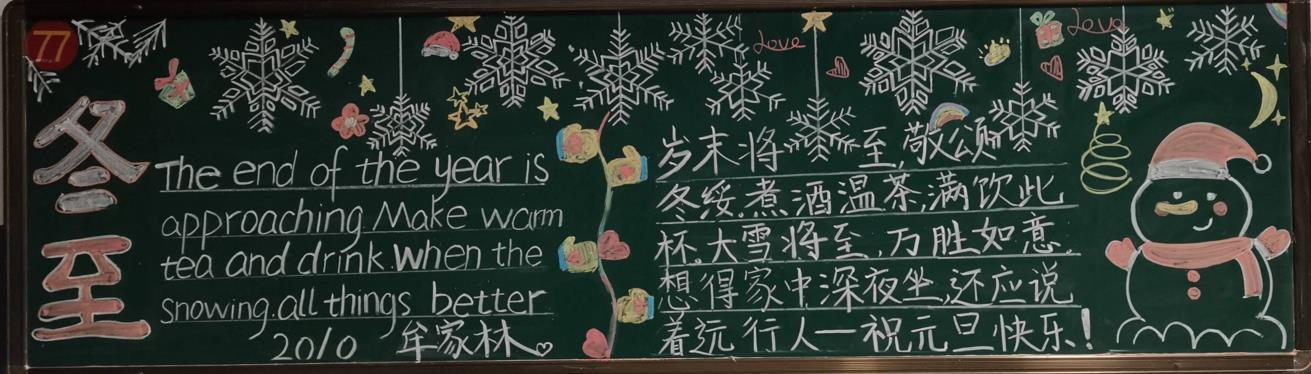 77
Love
Love
冬至
The end of the year is
approaching. Make warm
tea and drink. When the
snowing. all things better
2010 牟家林
岁末将至,敬颂
冬绥。煮酒温茶,满饮此
杯。大雪将至,万胜如意。
想得家中深夜坐,还应说
着远行人一祝元旦快乐!